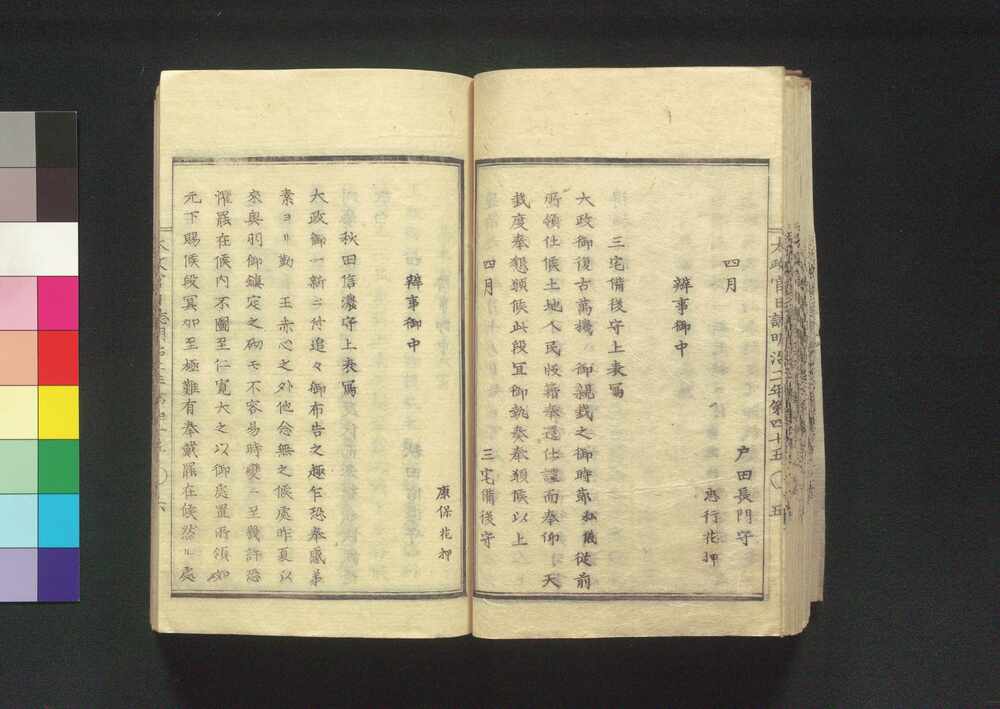 太政官日誌明治二年第四十五 五
四月
戸田長門守
忠行花押
辨事御中
三宅備後守上表寫
大政御復古萬機御親裁之御時節私儀従前
所領仕候土地人民版籍奉還仕謹而奉仰 天
裁度奉懇願候此段宜御執奏奉頼候以上
四月 三宅備後守
康保花押
辨事御中
秋田信濃守上表寫
大政御一新ニ付追々御布告之趣乍恐奉感承
素ヨリ勤 王赤心之外他念無之候處昨夏以
來奥羽御鎮定之砌モ不容易時變ニ至幾許恐
懼罷在候内不圖至仁寛大之以御處置所領如
元下賜候段冥加至極難有奉戴罷在候然ル處